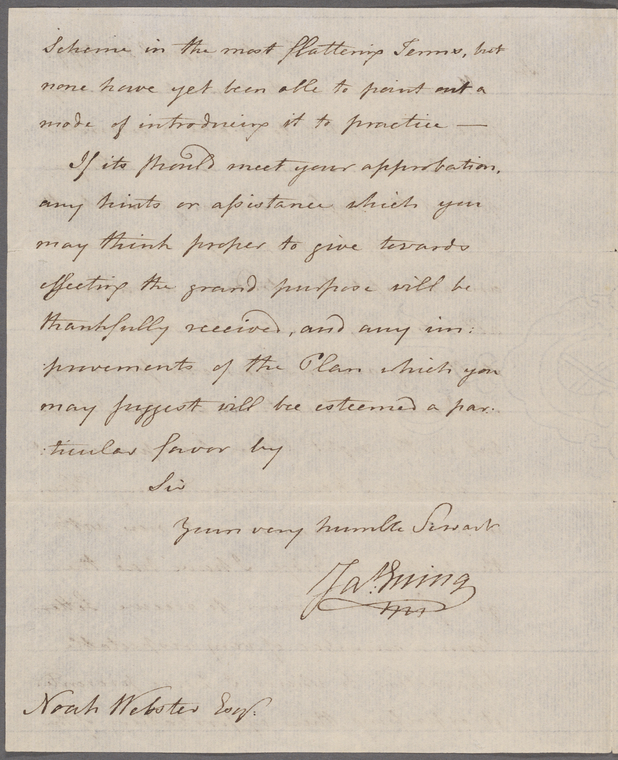 Scheme in the most flattering Terms, but
none have yet been able to point out a
mode of introducing it to practice —
If its should meet your approbation,
any hints or assistance which you
may think proper to give towards
effecting the grand purpose will be
thankfully received, and any im:
:provements of the Plan which you
may suggest will bee esteemed a par:
:ticular favor by
Sir
Your very humble Servant
Jas. Ewing
Noah Webster Esqr.